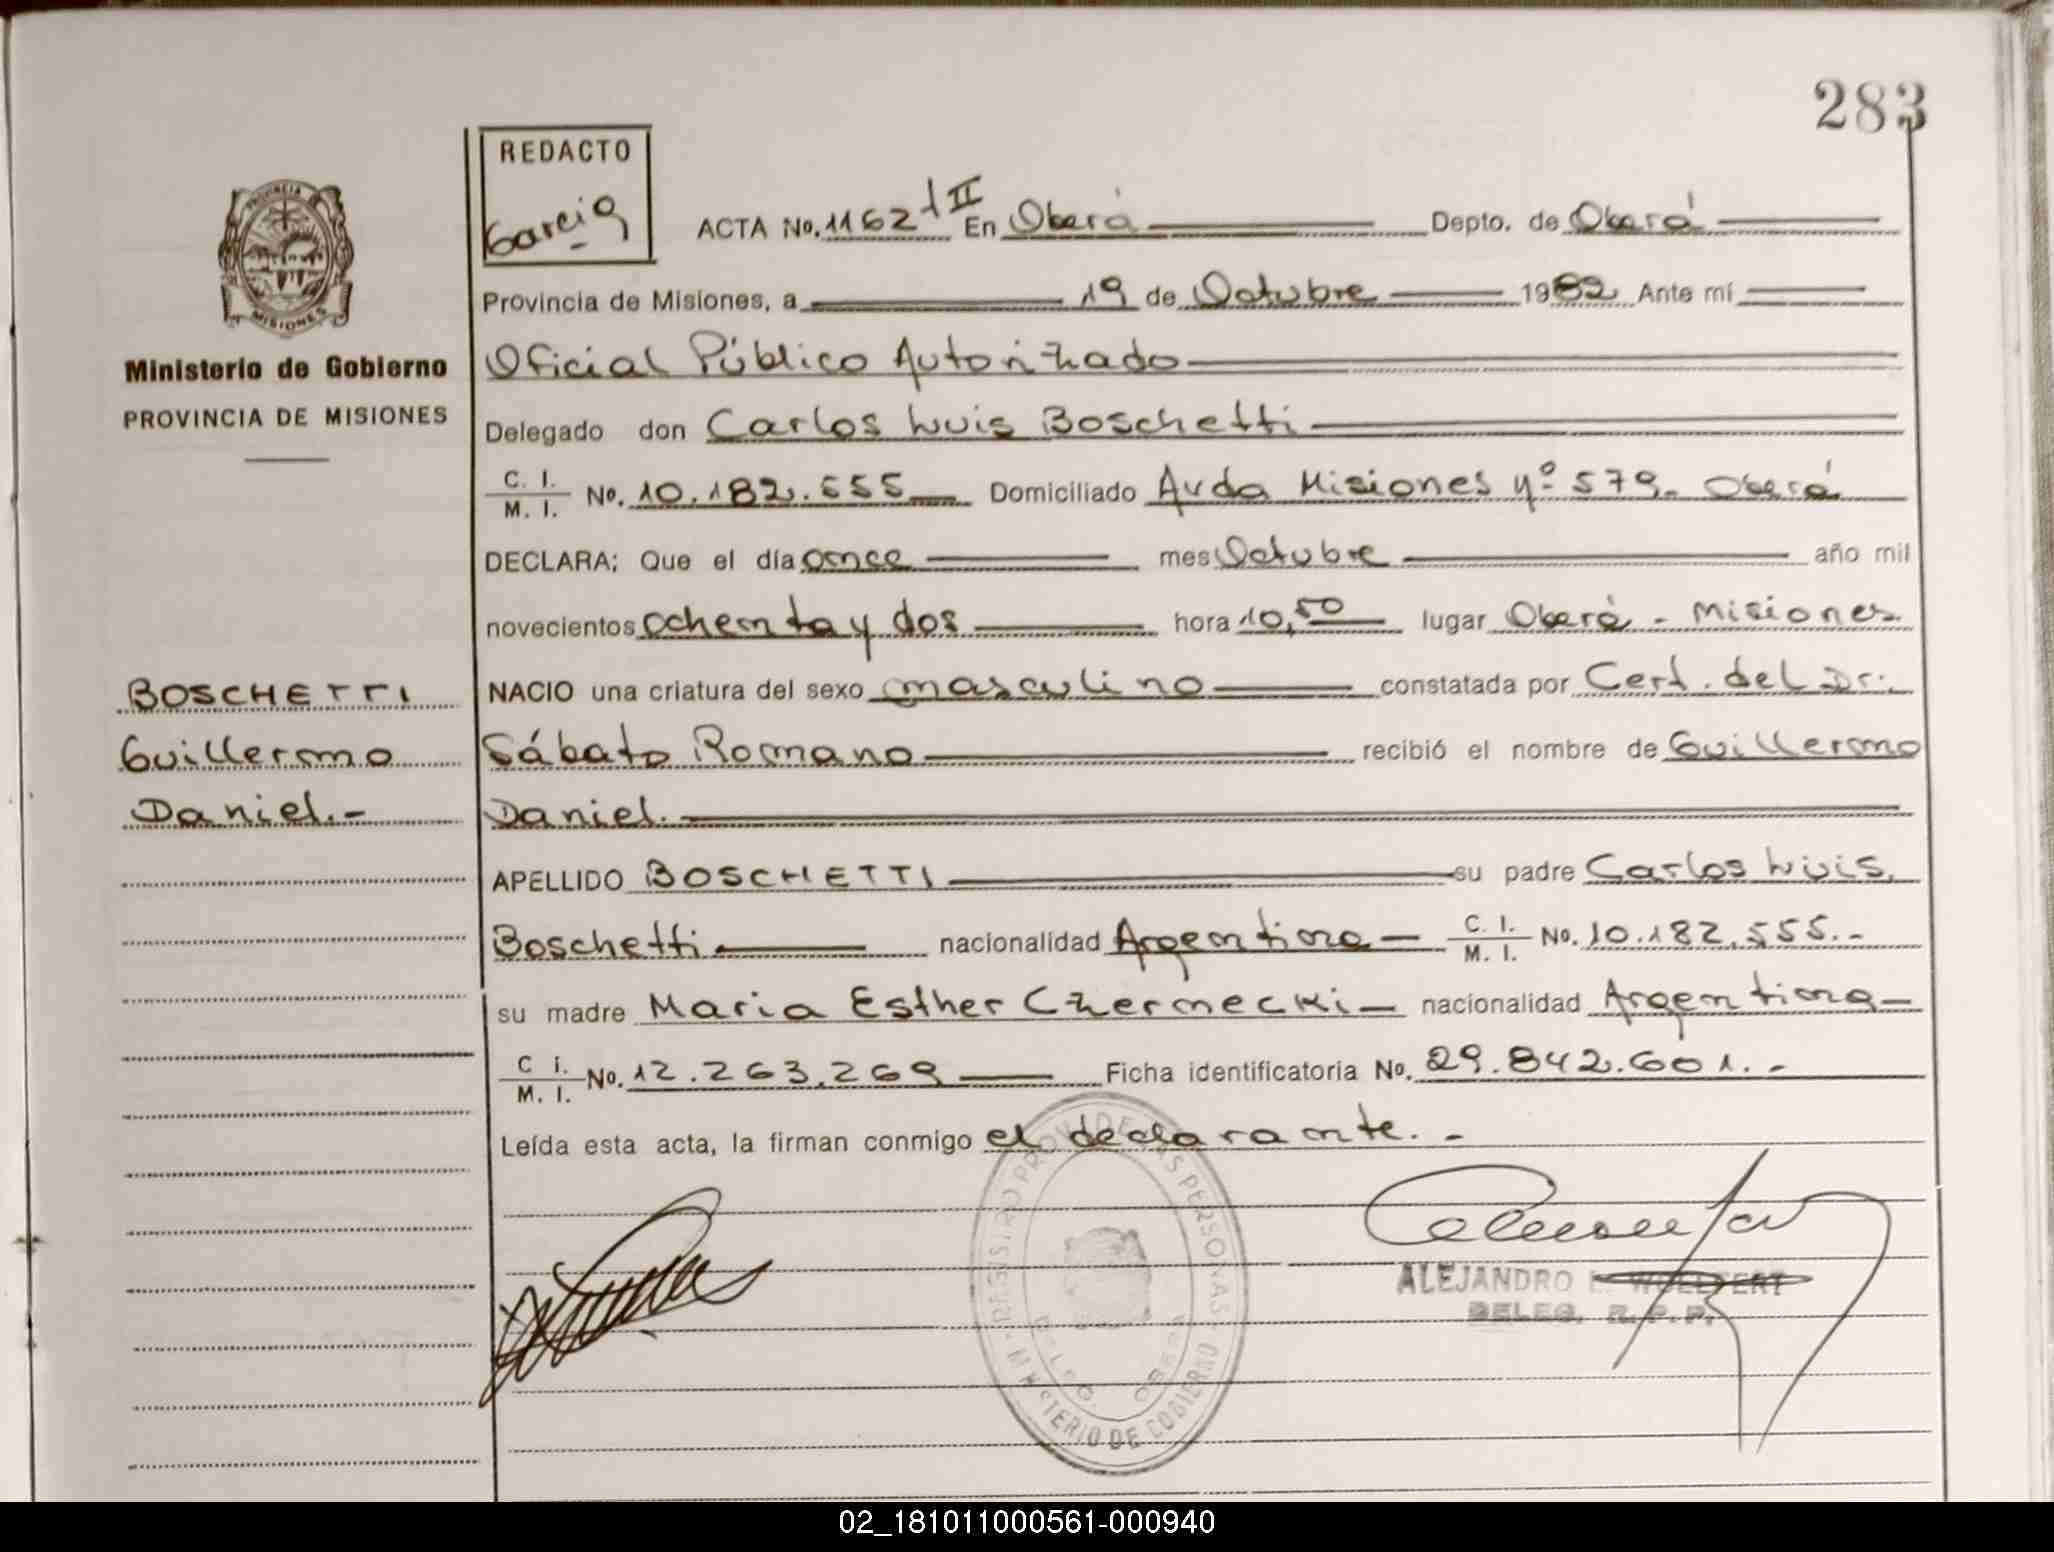 283
REDACTO
Garcia
PROVINCIA
MISIONES
Ministerio de Gobierno
PROVINCIA DE MISIONES
ACTA No. 1162 t II En Oberá Depto. de Oberá
Provincia de Misiones, a 19 de Octubre 1982 Ante mí
Oficial Público Autorizado
Delegado don Carlos Luis Boschetti
C. I.
M. I. No. 10.182.555 Domiciliado Avda Misiones Nº 579- Oberá
DECLARA; Que el día once mes Octubre año mil
novecientos ochenta y dos hora 10,50 lugar Oberá - Misiones
BOSCHETTI
Guillermo
Daniel.-
NACIO una criatura del sexo masculino constatada por Cert. del Dr.
Sábato Romano recibió el nombre de Guillermo
Daniel.
APELLIDO BOSCHETTI su padre Carlos Luis
Boschetti nacionalidad Argentina - C. I.
M. I. No. 10.182.555.-
su madre Maria Esther Czernecki - nacionalidad Argentina -
C i.
M. I. No. 12.263.269 Ficha identificatoria No. 29.842.601.-
Leída esta acta, la firman conmigo el declarante.-
REGISTRO PROV. DE LAS PERSONAS
MINISTERIO DE GOBIERNO
DELEG. OBERA
ALEJANDRO
DELEG. R. P. P.
02_181011000561-000940